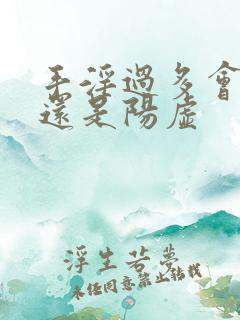 手淫過多會
還是陽虛
浮生若夢
未經同意禁止轉載